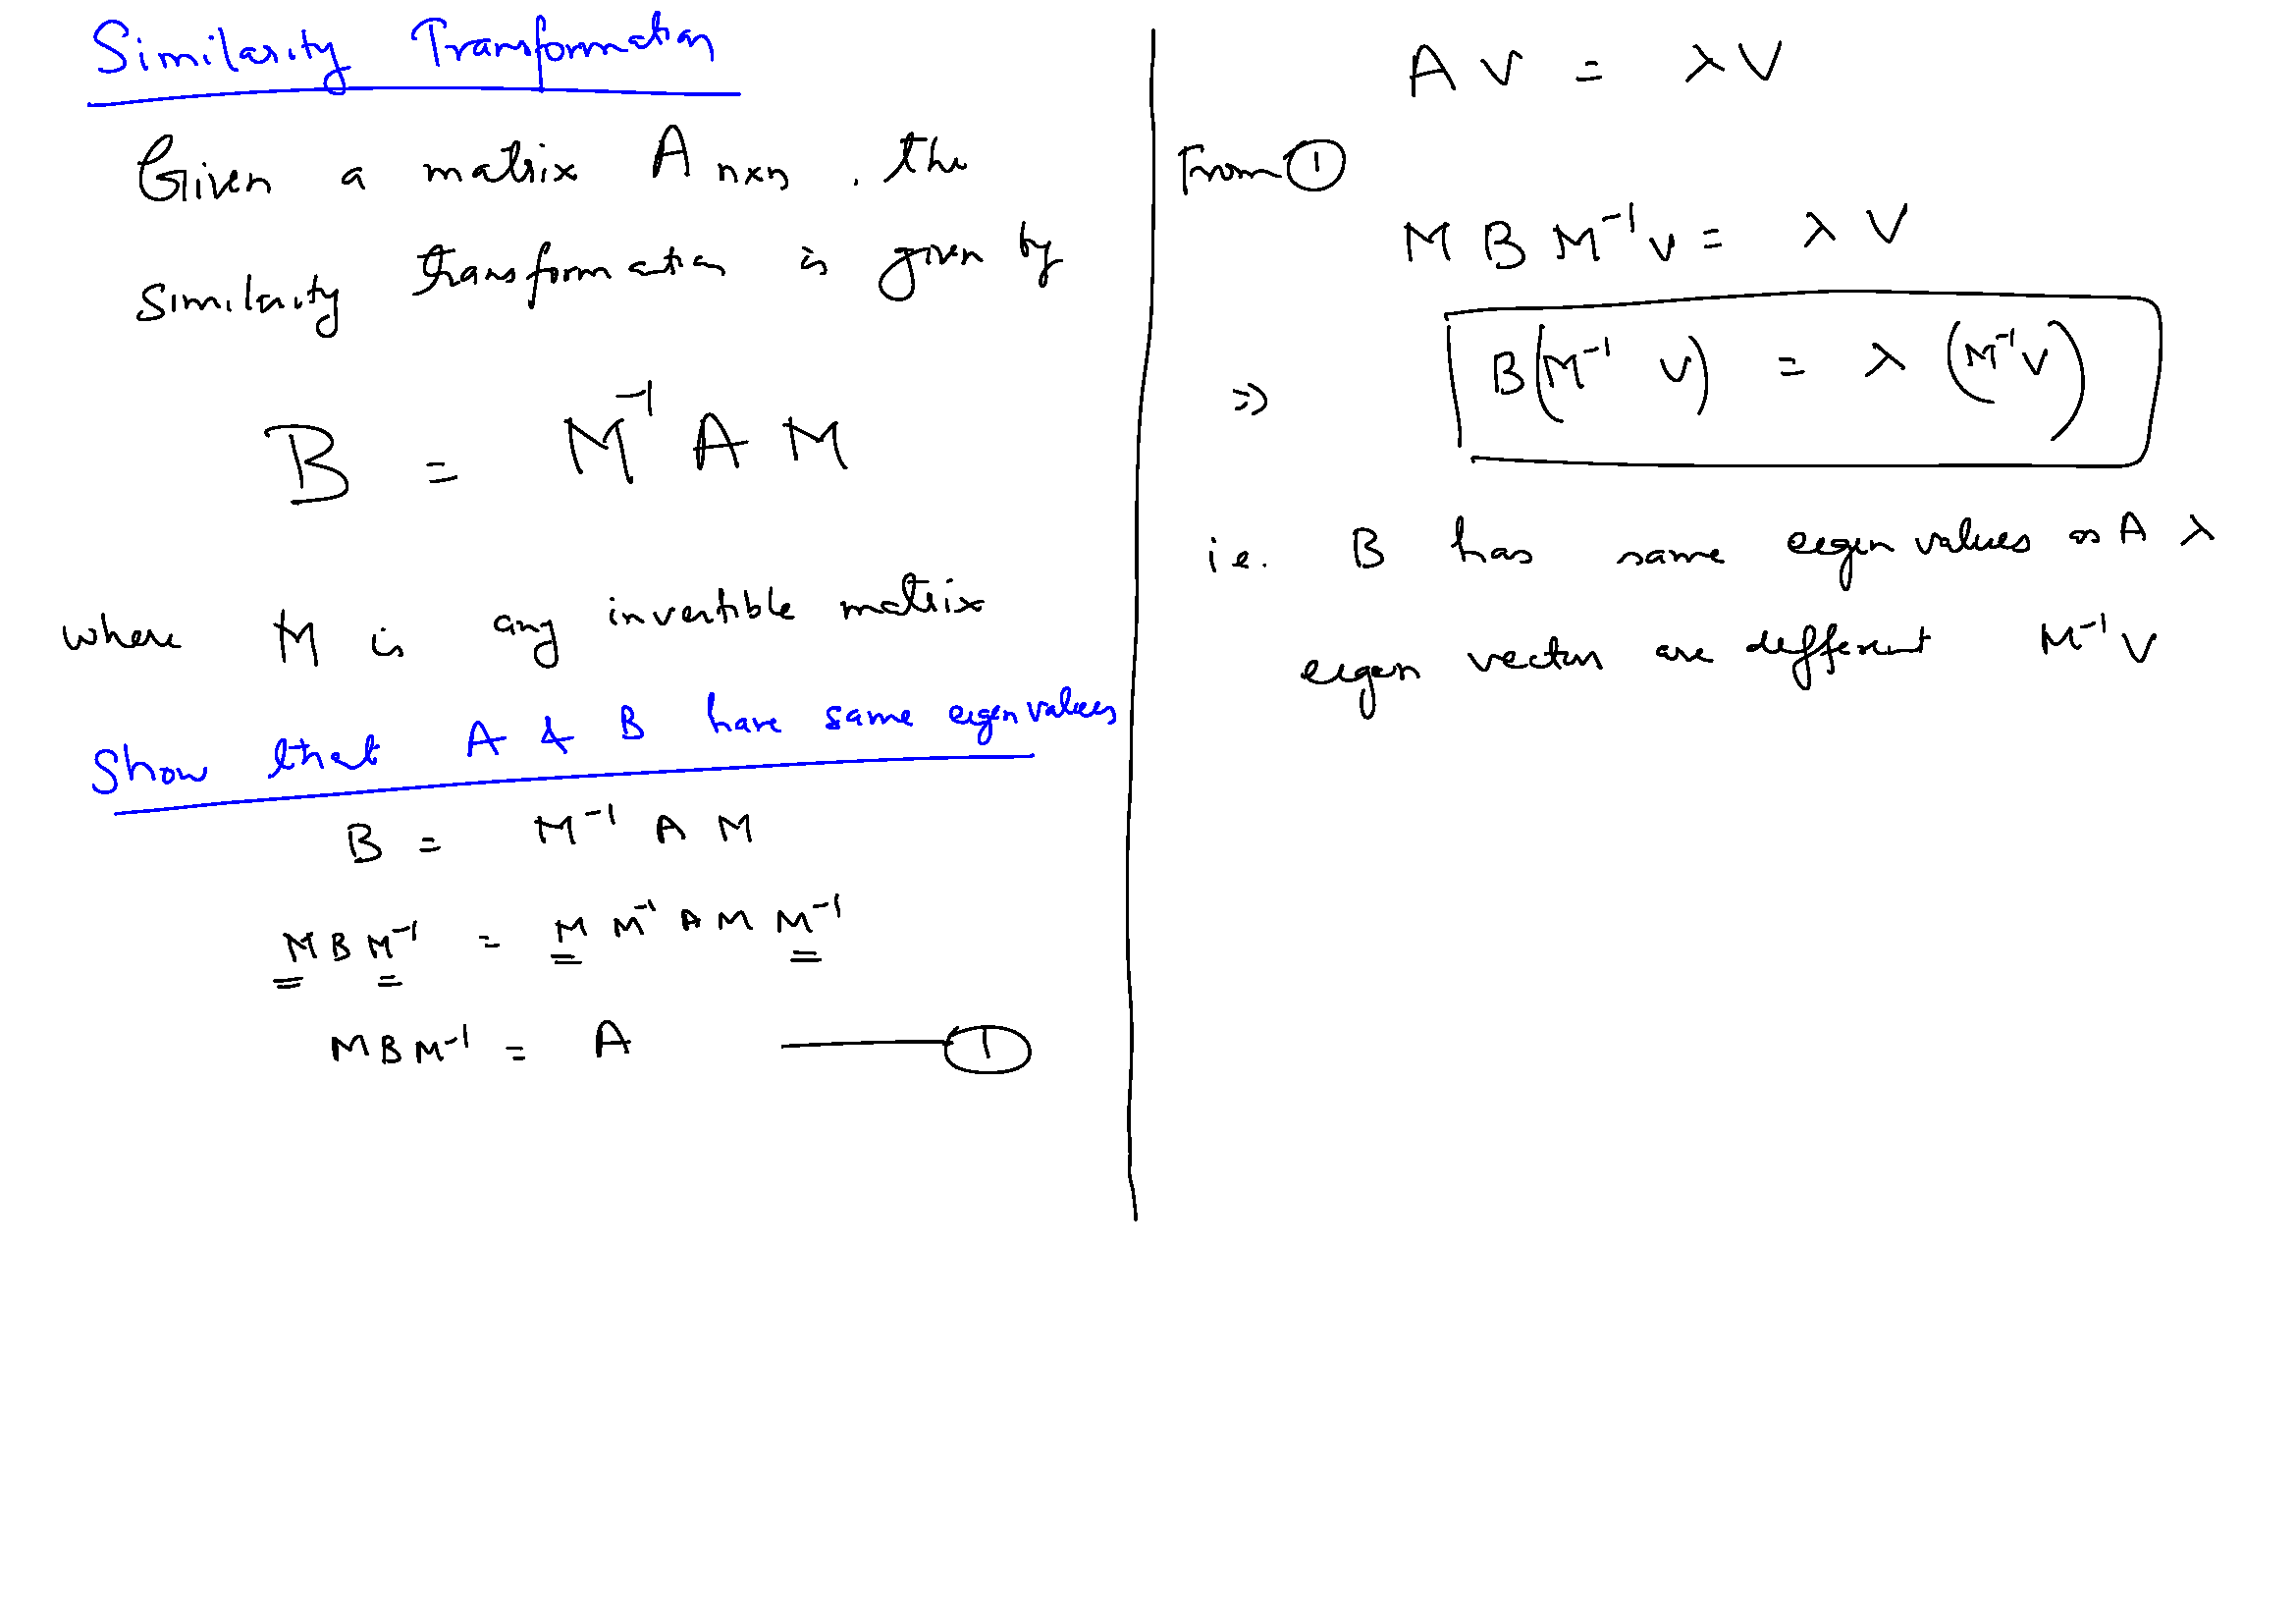 Similarity Transformation
Given a matrix A n×n , the
similarity transformation is given by
B = M⁻¹ A M
where M is any invertible matrix
Show that A & B have same eigen values
B = M⁻¹ A M
M B M⁻¹ = M M⁻¹ A M M⁻¹
M B M⁻¹ = A ——— ①
A V = λ V
From ①
M B M⁻¹ V = λ V
⇒ B(M⁻¹ V) = λ (M⁻¹ V)
i.e. B has same eigen values as A λ
eigen vectors are different M⁻¹ V